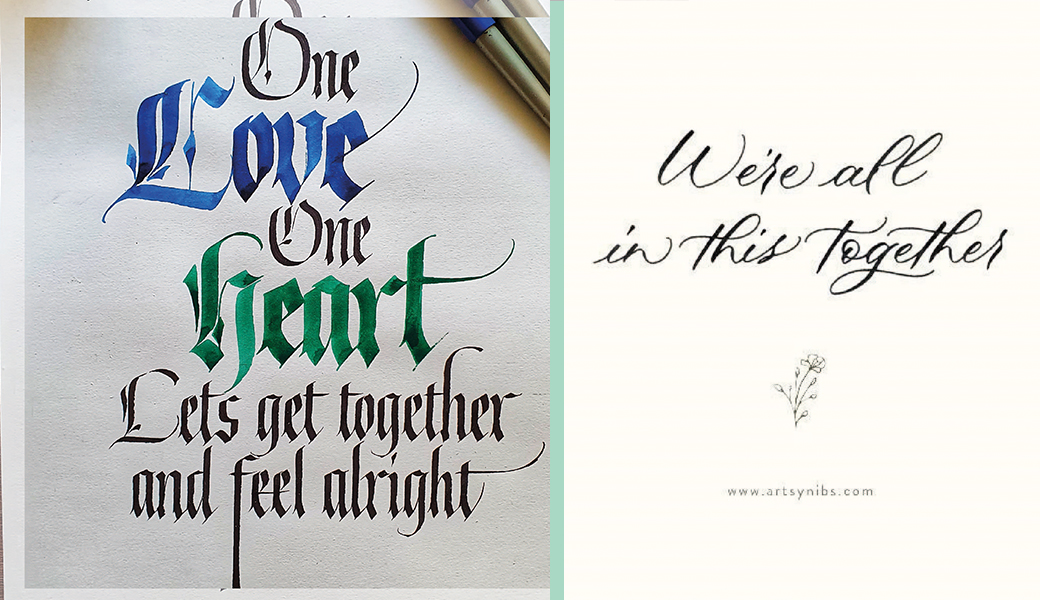 One
Love
One
Heart
Lets get together
and feel alright
We're all
in this together
www.artsynibs.com